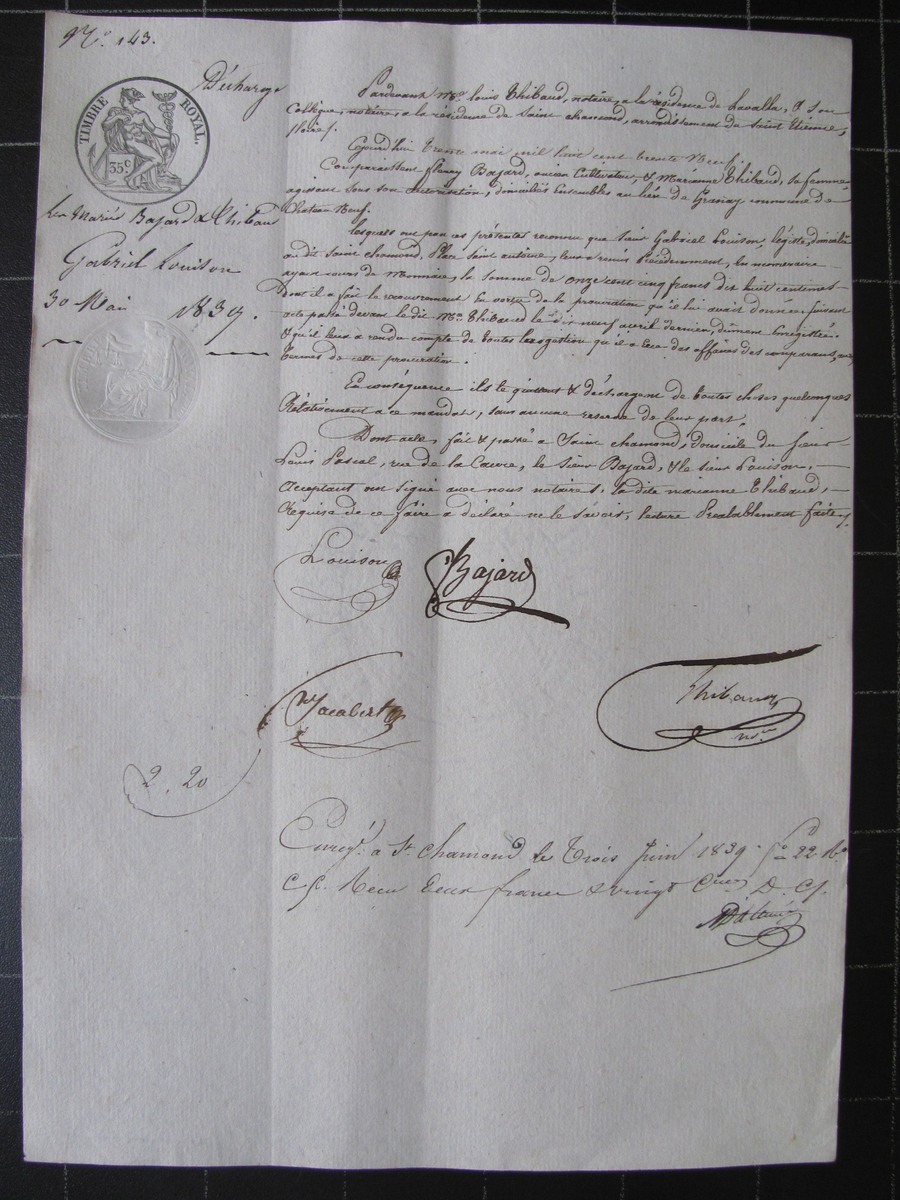 N.º 143.
Décharge
TIMBRE ROYAL.
35c
Les Mariés Bajard & Thibaud
Gabriel Louison
30 Mai 1839.
Pardevant Me. Louis Thibaud, notaire, a la résidence de Lavalla, & son
Collègue, notaire, a la résidence de Saint chamond, arrondissement de Saint Etienne,
(Loire).
Cejourd'hui trente mai mil huit cent trente Neuf.
Comparaissent fleury Bajard, ancien Cultivateur, & Marianne Thibaud, sa femme
agissant sous son autorisation, domiciliés Ensembles au lieu de Granay commune de
Chateau Neuf.
Lesquels ont par ces présentes reconnu que Sieur Gabriel Louison, légiste, domicilié
au dit Saint chamond, Place Saint antoine, leur a remis Précédemment, En numeraire
ayant cours de Monnaie, la somme de onze cent cinq francs dix huit centimes
dont il a fait le recouvrement En vertu de la procuration qu'ils lui avait donnée suivant
acte passé devant le dit Me. Thibaud le dix neuf avril dernier, dûment Enregistré.
& qu'il leur a rendu compte de toutes les gestion qu'il a Eue des affaires des comparants, aux
termes de cette procuration.
En conséquence ils le quittent & déchargent de toutes choses quelconques
Rélativement a ce mandat, sans aucune reserve de leur part.
Dont acte, fait & passé à Saint chamond, domicile du sieur
Louis Pascal, rue de la Caure, le sieur Bajard, & le sieur Louison.
Acceptant ont signé avec nous notaires, la dite marianne Thibaud,
Requise de ce faire à declaré ne le savoir, lecture Préalablement faite.
Louison
Bajard
Jacabert
Thibaud
nre
2. 20
Enregt. a St. Chamond le trois Juin 1839. fo 22 Ro
C. Recu deux francs & vingt Cmes D. C.